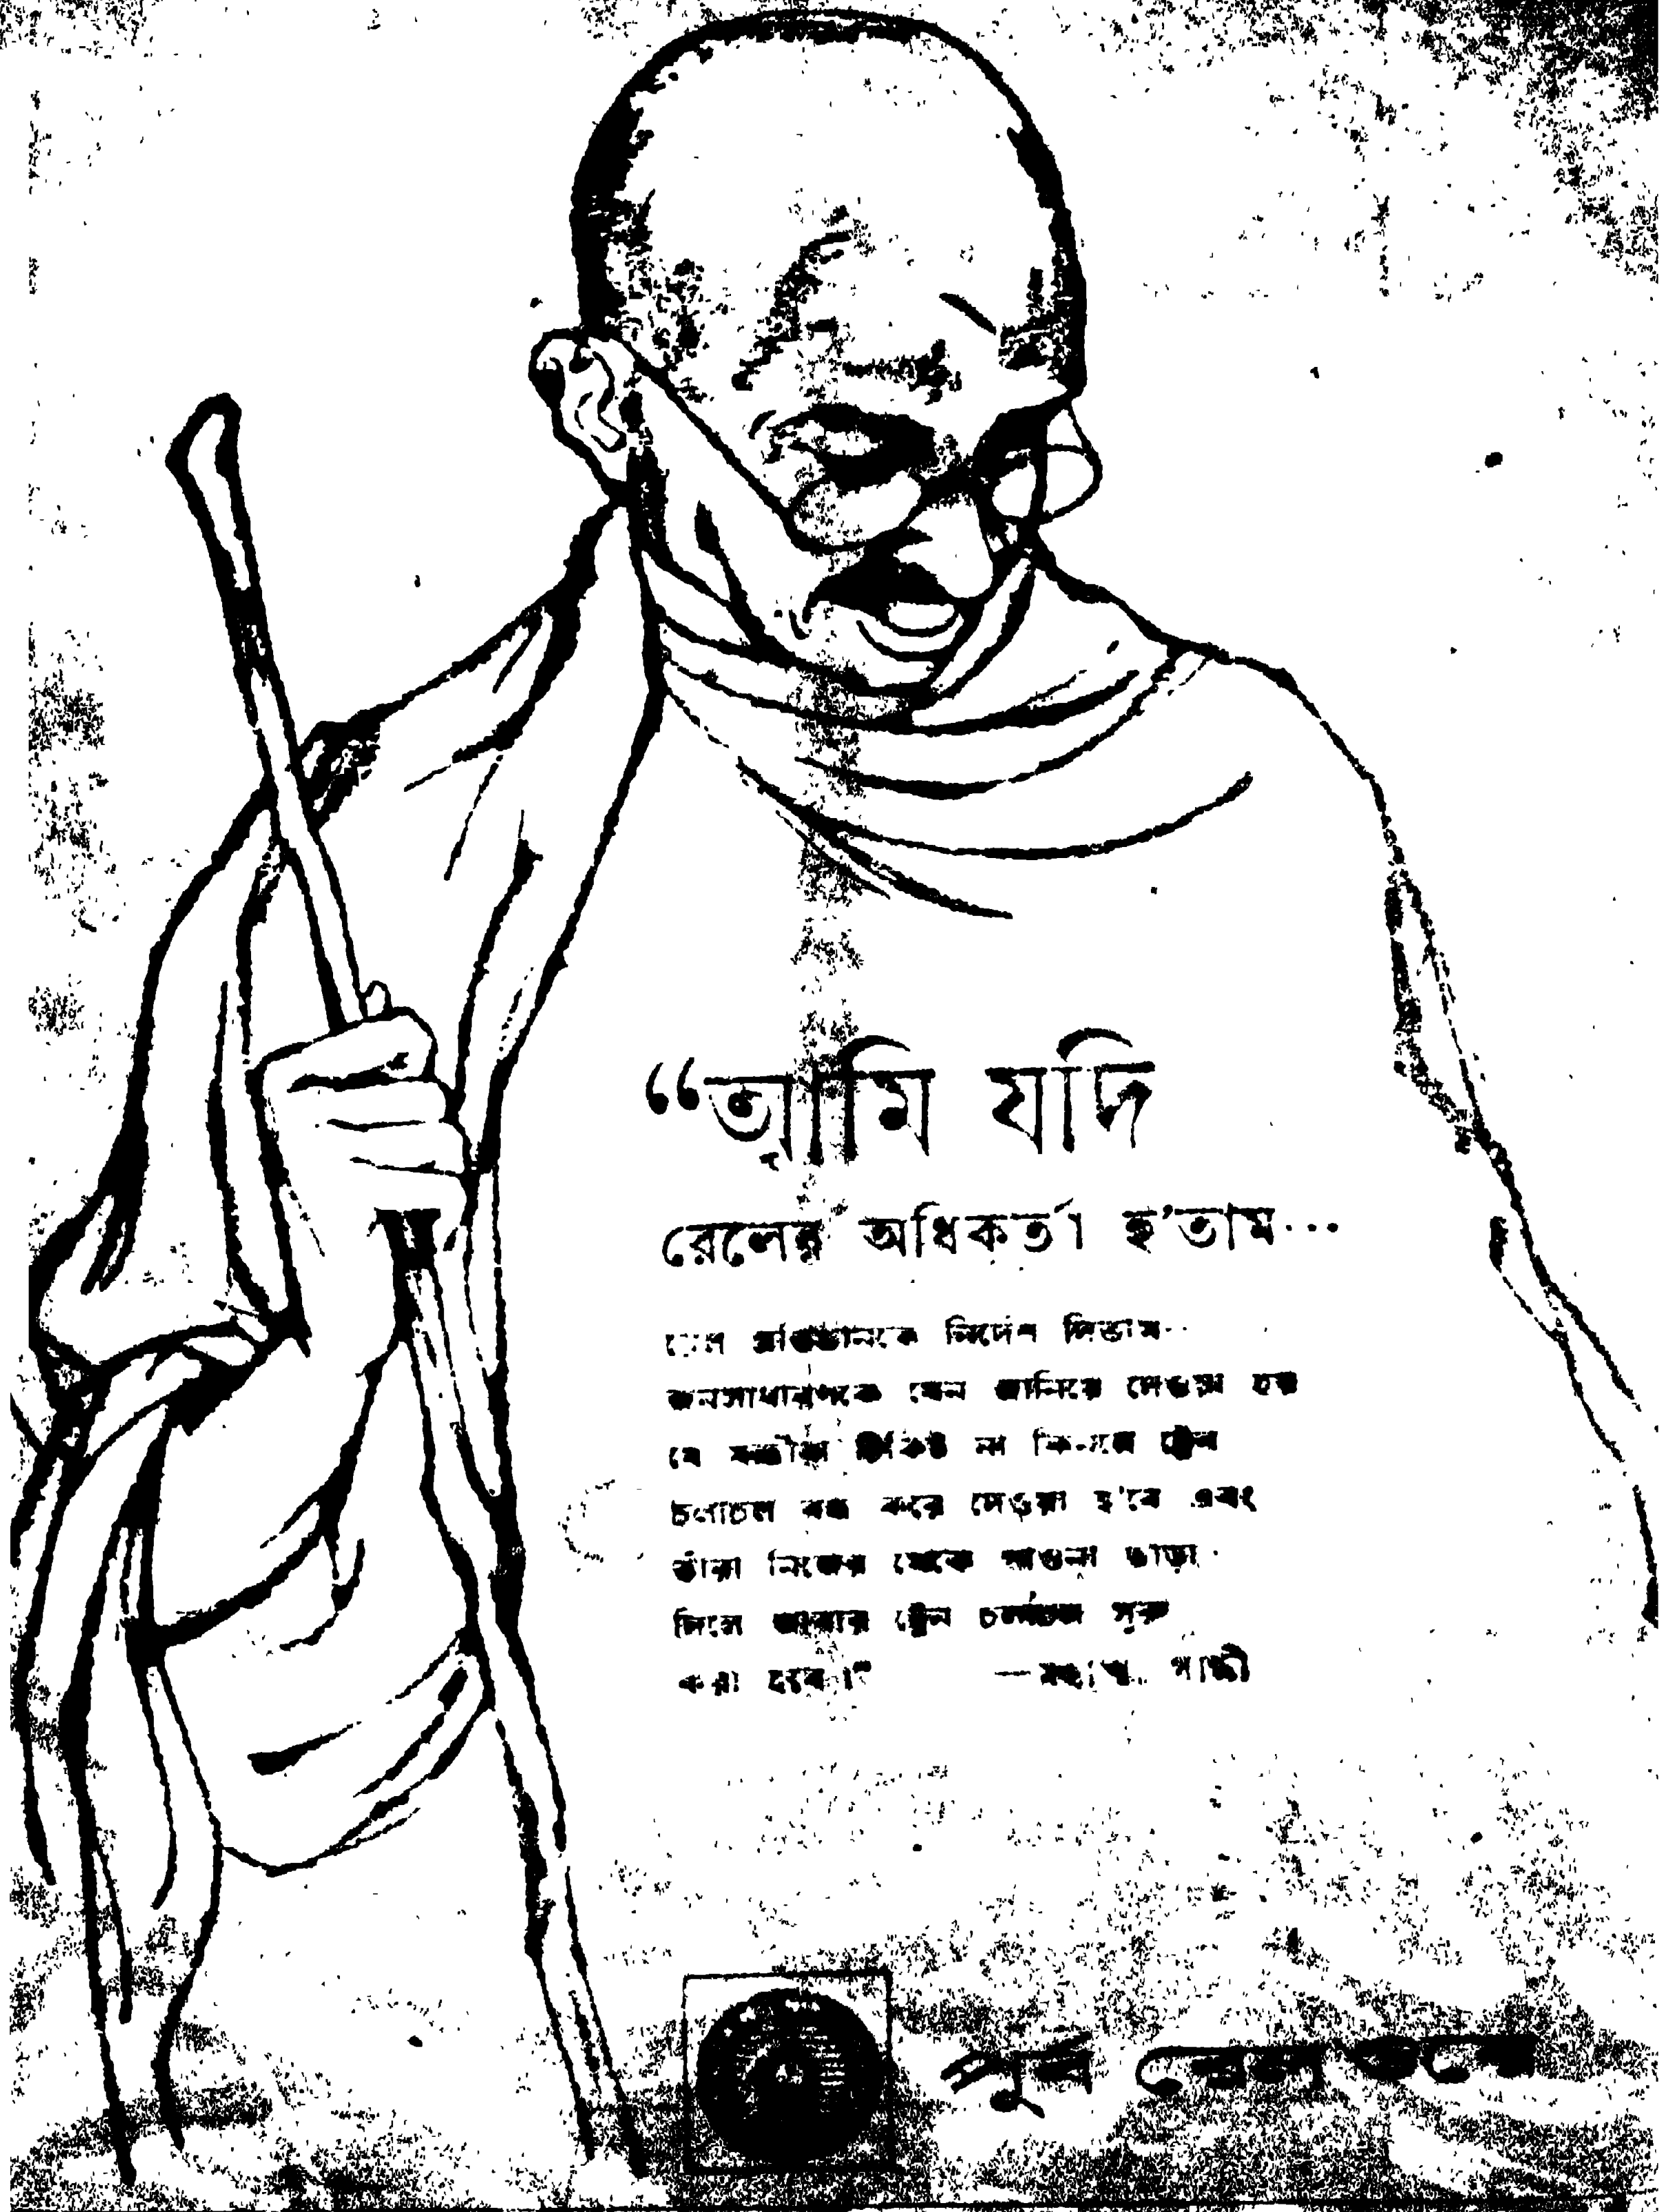 “আমি যদি
রেলের অধিকর্তা হ’তাম...
রেল প্রতিষ্ঠানকে নির্দেশ দিতাম..
জনসাধারণকে যেন জানিয়ে দেওয়া হয়
যে যাত্রীরা টিকিট না কিনলে ট্রেন
চলাচল বন্ধ করে দেওয়া হ’বে এবং
তাঁরা নিজের থেকে পাওনা ভাড়া
দিলে আবার ট্রেন চলাচল সুরু
করা হবে।” —মহাত্মা গান্ধী
পূর্ব রেলওয়ে